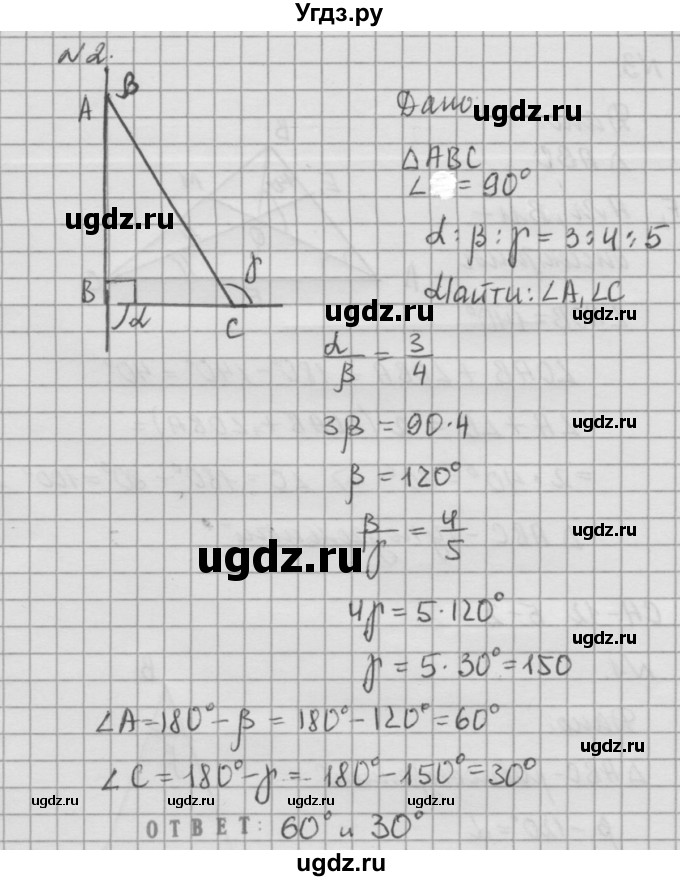 Угдз.ру
№2.
A β
Дано:
ugdz.ru
△ABC
∠ = 90°
ugdz.ru
α : β : γ = 3 : 4 : 5
γ
B
Найти: ∠A, ∠C
α
C
ugdz.ru
ugdz.ru
α/β = 3/4
3β = 90·4
ugdz.ru
β = 120°
β/γ = 4/5
ugdz.ru
ugdz.ru
4γ = 5·120°
ugdz.ru
γ = 5·30° = 150
∠A = 180° - β = 180° - 120° = 60°
ugdz.ru
∠C = 180° - γ = 180° - 150° = 30°
ugdz.ru ugdz.ru ugdz.ru ugdz.ru ugdz.ru
ОТВЕТ: 60° и 30°
ugdz.ru